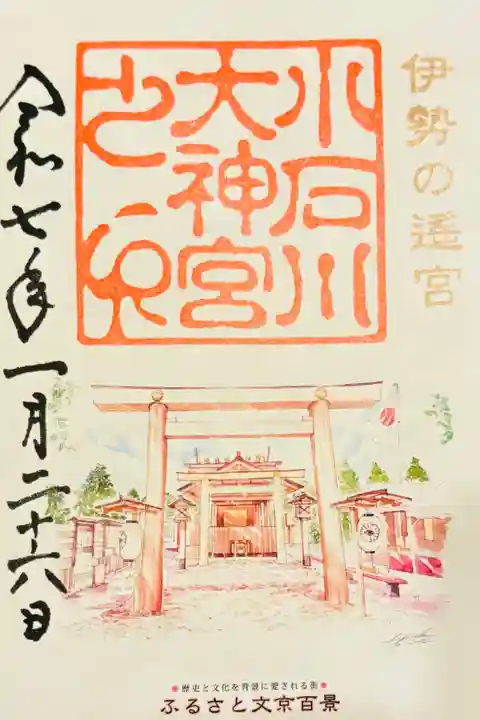 伊勢の遥宮
小石川
大神宮
之印
令和七年一月二十六日
歴史と文化を背景に愛される街
ふるさと文京百景